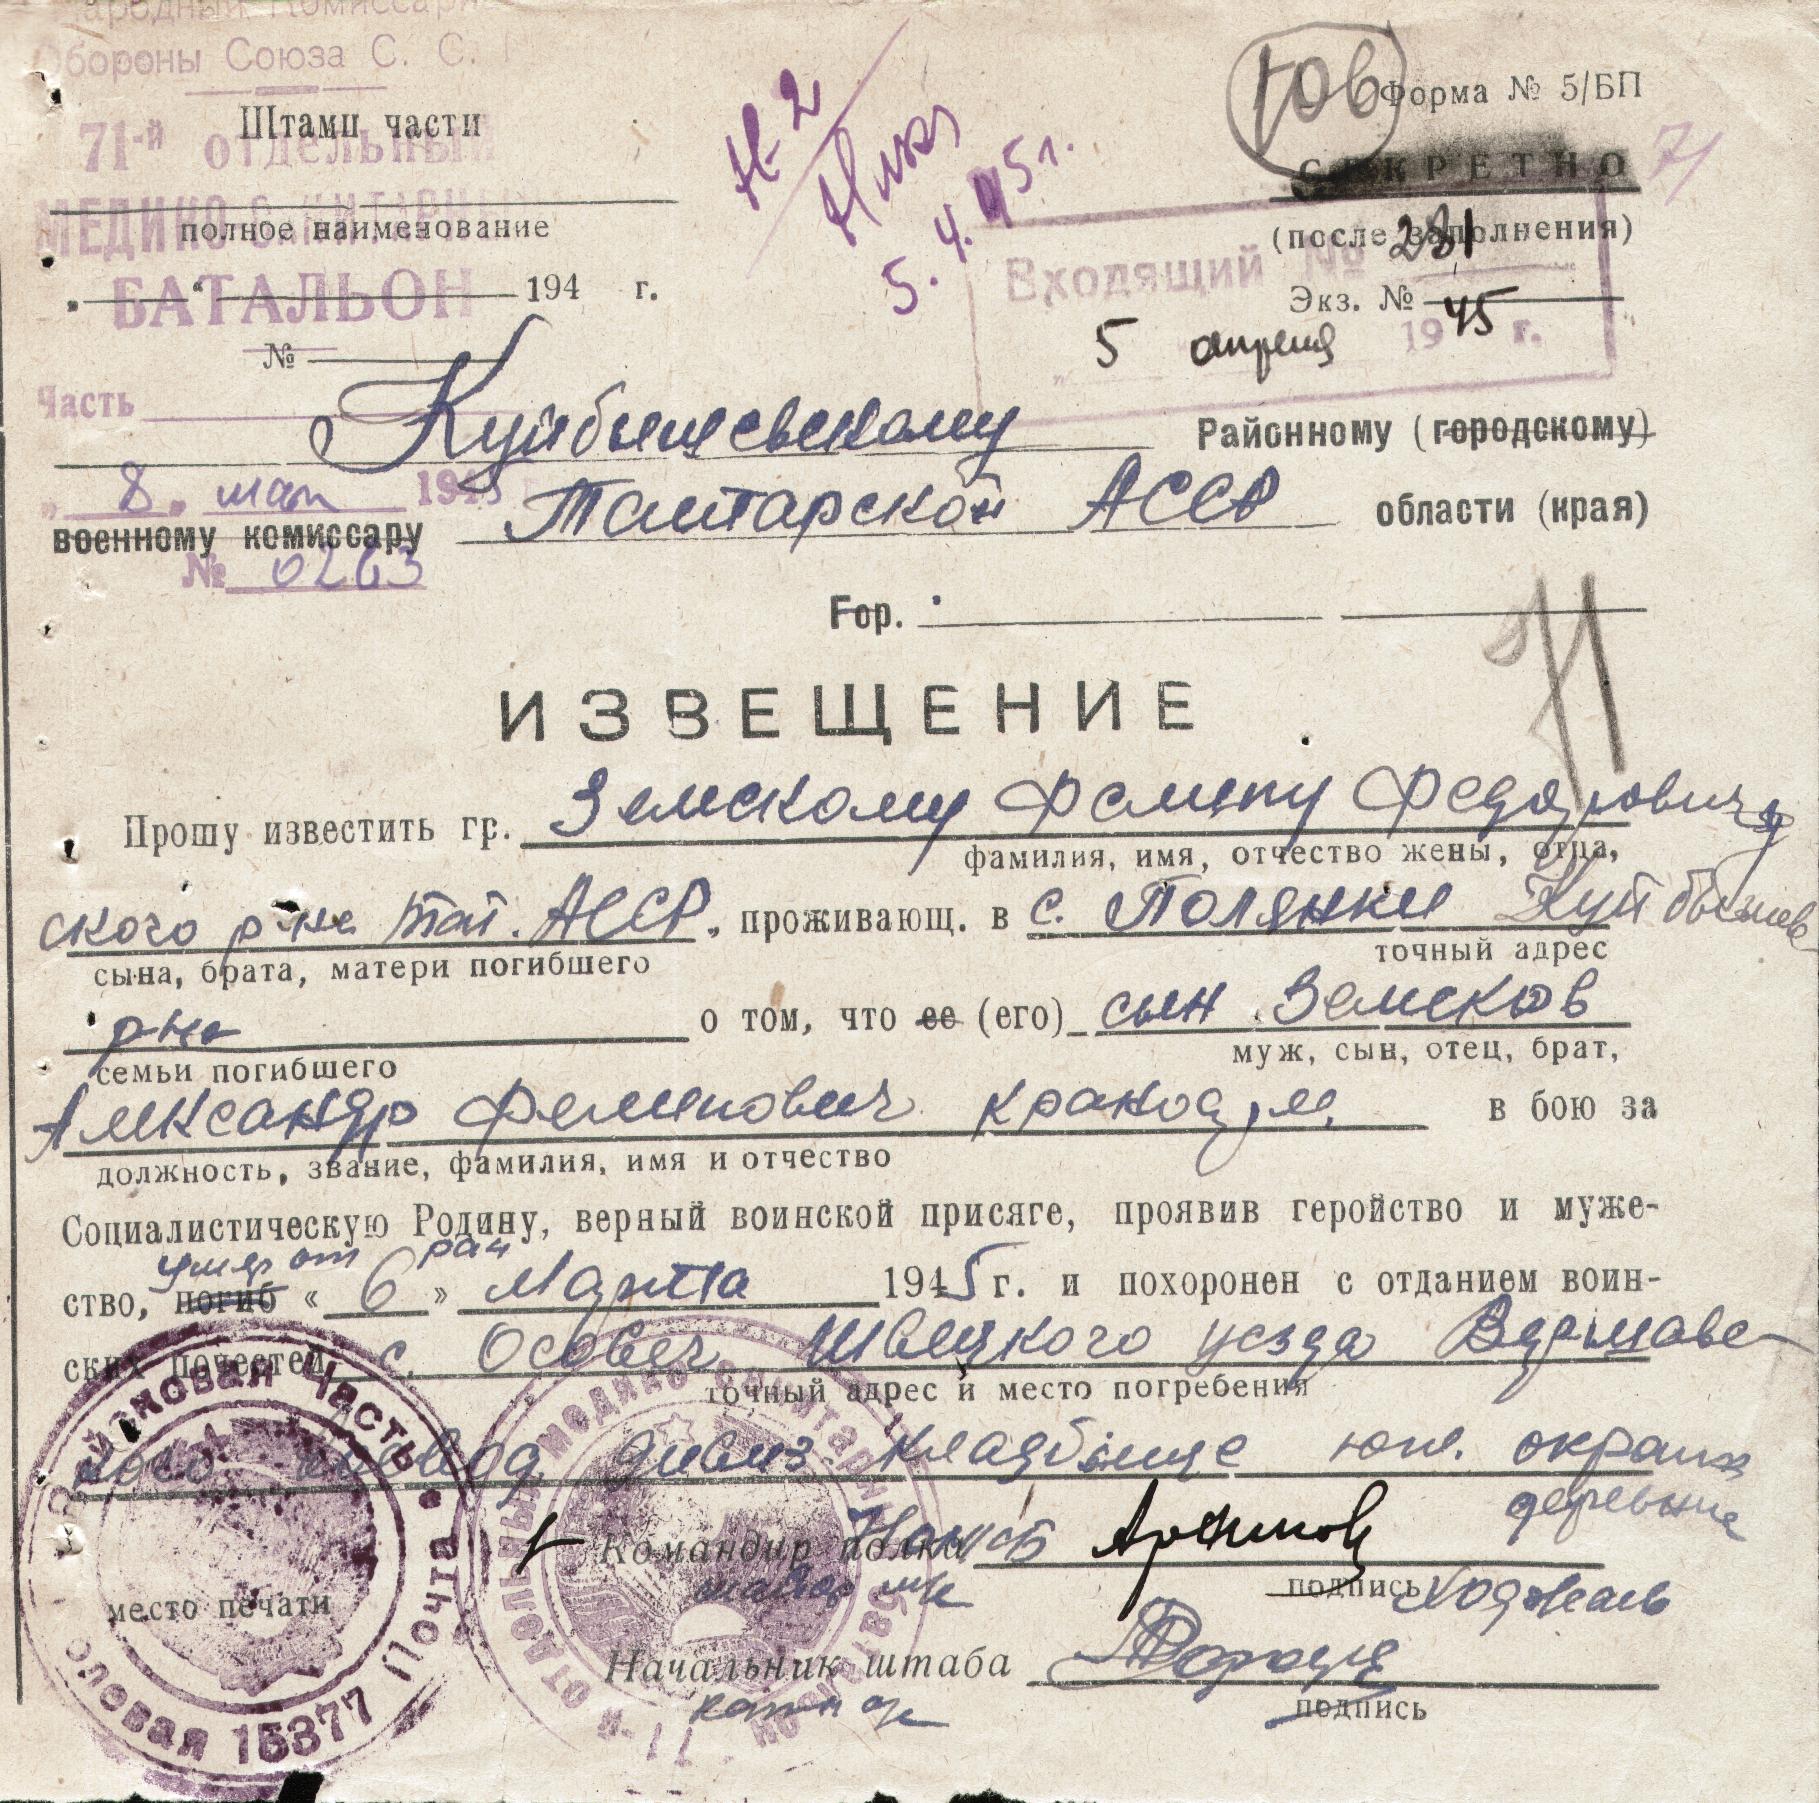 Народный Комиссари
Обороны Союза С. С.
Штамп части
71-й отдельный
МЕДИКО САНИТАРН
полное наименование
БАТАЛЬОН
„ “ 194 г.
№
Часть
„ 8 „ мая 194
№ 0263
Н-2
5.4.45 г.
Форма № 5/БП
СЕКРЕТНО 71
(после заполнения)
Входящий № 281
Экз. №
5 апреля 1945 г.
Куйбышевскому Районному (городскому)
военному комиссару Татарской АССР области (края)
Гор.
71
ИЗВЕЩЕНИЕ
Прошу известить гр. Земскому Федоровичу
фамилия, имя, отчество жены, отца,
ского р-на Тат. АССР, проживающ. в с. Полянки Куйбышев
сына, брата, матери погибшего точный адрес
р-на о том, что ее (его) сын Земсков
семьи погибшего муж, сын, отец, брат,
Александр Филипович в бою за
должность, звание, фамилия, имя и отчество
Социалистическую Родину, верный воинской присяге, проявив геройство и муже-
умер от ран
ство, погиб « 6 » Марта 1945 г. и похоронен с отданием воин-
ских почестей с. Осовец уезда Варшавс-
точный адрес и место погребения
кого воевод. дивиз. кладбище юж. окраина
деревни
Командир полка
майор м/с
подпись
место печати
Начальник штаба
подпись
Войсковая часть • Полевая почта 15377
71-й отдельный медико санитарный батальон